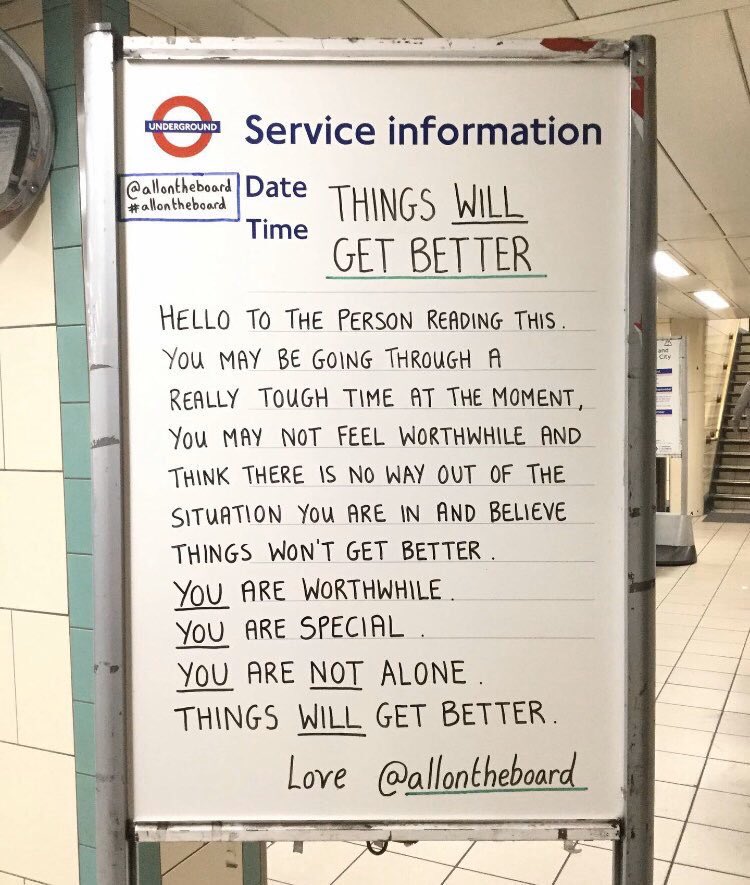 UNDERGROUND
Service information
@allontheboard
#allontheboard
Date
Time
THINGS WILL
GET BETTER
HELLO TO THE PERSON READING THIS.
YOU MAY BE GOING THROUGH A
REALLY TOUGH TIME AT THE MOMENT,
YOU MAY NOT FEEL WORTHWHILE AND
THINK THERE IS NO WAY OUT OF THE
SITUATION YOU ARE IN AND BELIEVE
THINGS WON'T GET BETTER.
YOU ARE WORTHWHILE.
YOU ARE SPECIAL.
YOU ARE NOT ALONE.
THINGS WILL GET BETTER.
Love @allontheboard
and
City